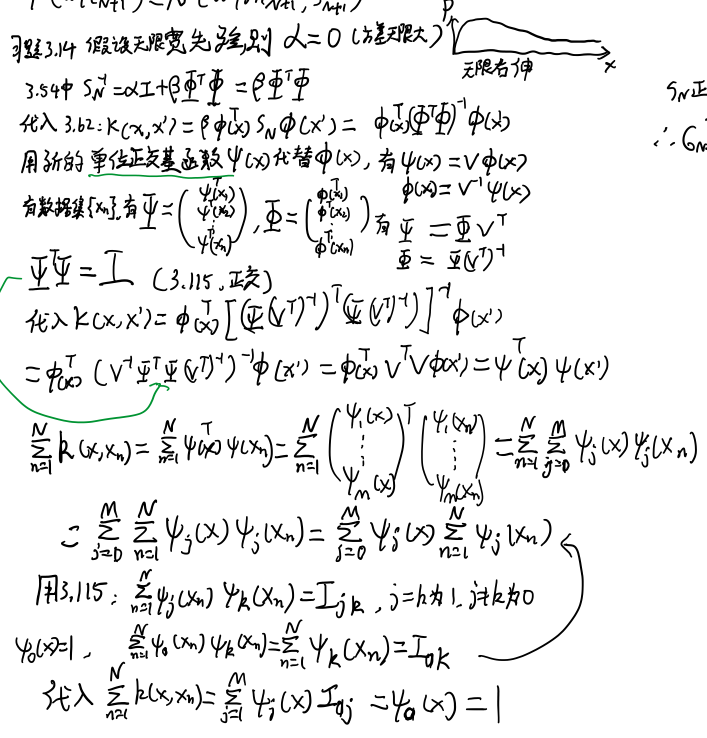 习题3.14 假设无限宽先验,则 α=0 (方差无限大)
P
x
无限右伸
3.54中 S_N^{-1}=αI+βΦ^TΦ = βΦ^TΦ
代入 3.62: k(x,x')=βφ(x)^T S_N φ(x') = φ(x)^T(Φ^TΦ)^{-1}φ(x')
用新的单位正交基函数ψ(x)代替φ(x), 有ψ(x)=Vφ(x)
φ(x)=V^{-1}ψ(x)
有数据集{x_n},有Ψ=(ψ^T(x_1) ψ^T(x_2) ⋮ ψ^T(x_N)), Φ=(φ^T(x_1) φ^T(x_2) ⋮ φ^T(x_N)) 有 Ψ=ΦV^T
Φ=Ψ(V^T)^{-1}
Ψ^TΨ=I (3.115,正交)
代入 k(x,x')=φ(x)^T[(Ψ(V^T)^{-1})^T(Ψ(V^T)^{-1})]^{-1}φ(x')
=φ(x)^T(V^{-1}Ψ^TΨ(V^T)^{-1})^{-1}φ(x')=φ(x)^T V^T Vφ(x')=ψ^T(x)ψ(x')
∑_{n=1}^N k(x,x_n)=∑_{n=1}^N ψ(x)^Tψ(x_n)=∑_{n=1}^N (ψ_1(x) ⋮ ψ_m(x))^T (ψ_1(x_n) ⋮ ψ_m(x_n)) =∑_{n=1}^N ∑_{j=0}^M ψ_j(x)ψ_j(x_n)
=∑_{j=0}^M ∑_{n=1}^N ψ_j(x)ψ_j(x_n)=∑_{j=0}^M ψ_j(x)∑_{n=1}^N ψ_j(x_n)
用3.115: ∑_{n=1}^N ψ_j(x_n)ψ_k(x_n)=I_{jk}, j=k为1, j≠k为0
ψ_0(x)=1, ∑_{n=1}^N ψ_0(x_n)ψ_k(x_n)=∑_{n=1}^N ψ_k(x_n)=I_{0k}
代入 ∑_{n=1}^N k(x,x_n)=∑_{j=1}^M ψ_j(x)I_{0j}=ψ_0(x)=1
S_N正
∴G_N